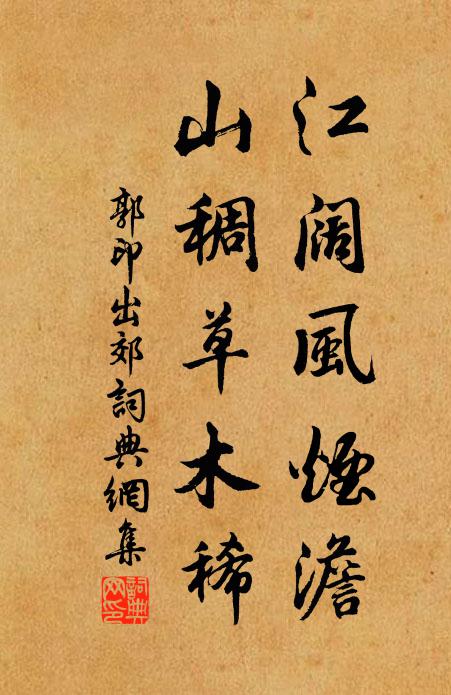 江阔風煙澹
山稠草木稀
郭印出郊詞典網集
詞典网印